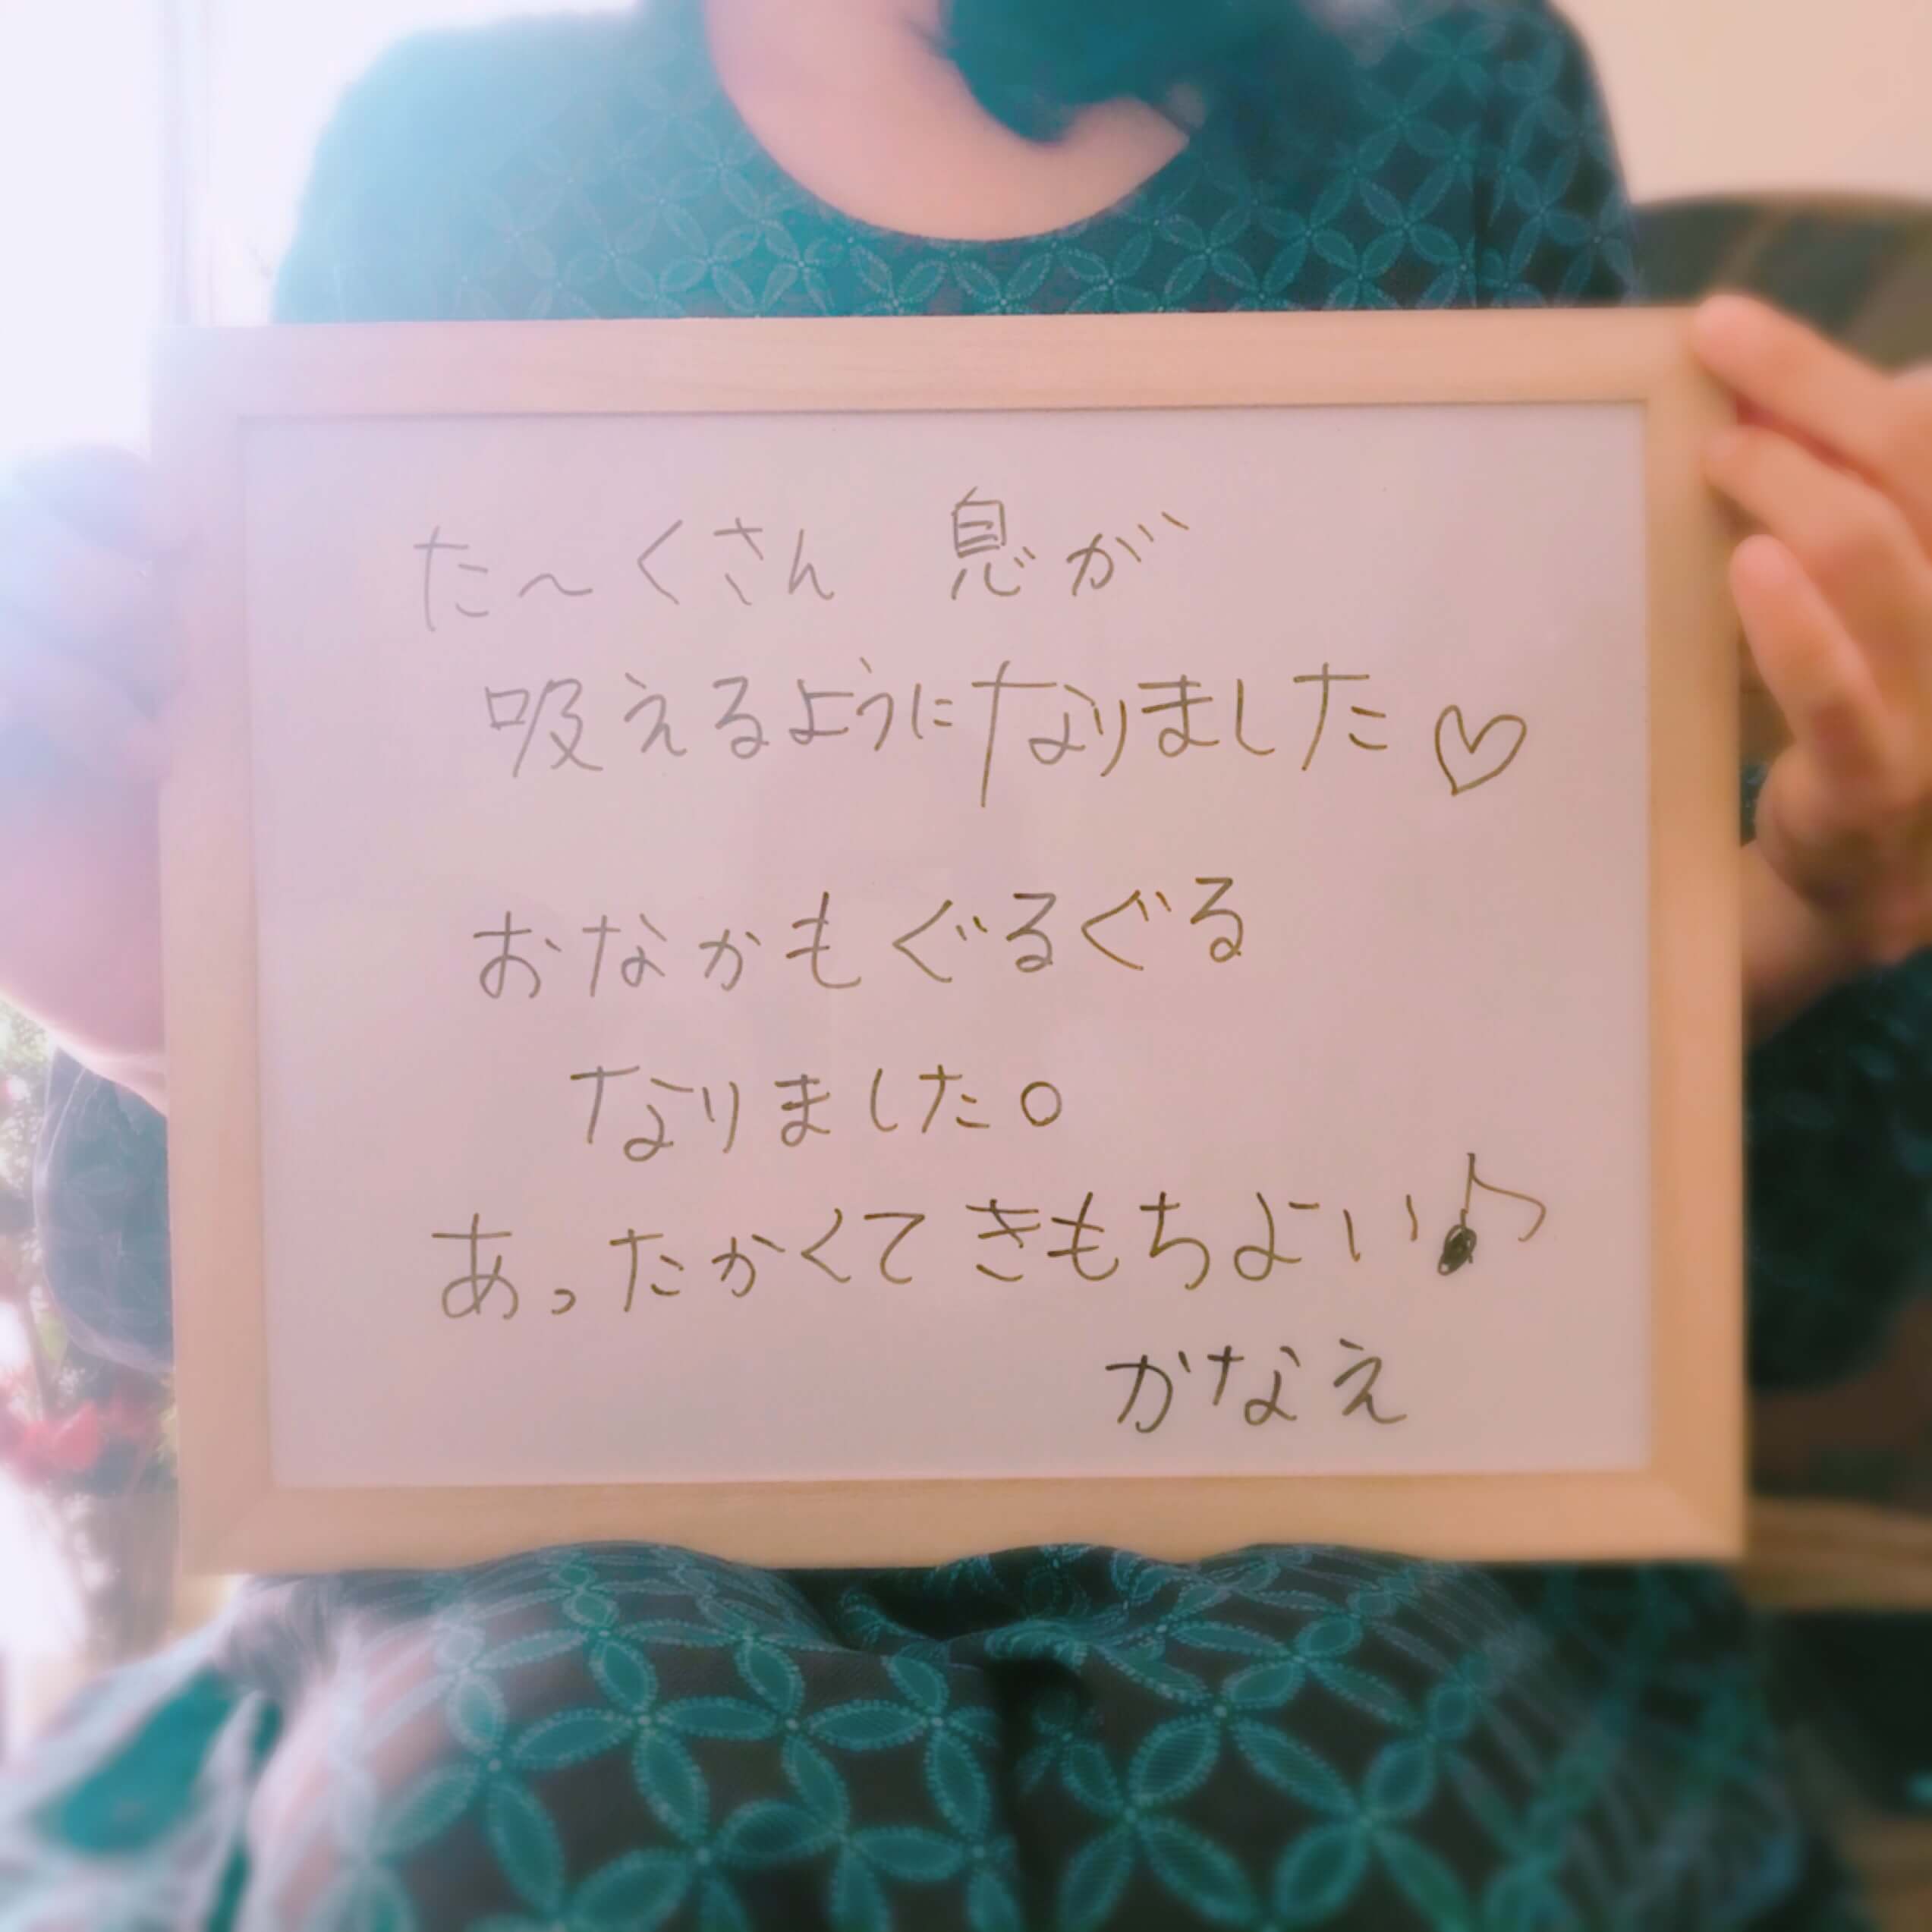 た〜くさん 息が
吸えるようになりました♡
おなかもぐるぐる
なりました。
あったかくてきもちよい♪
かなえ